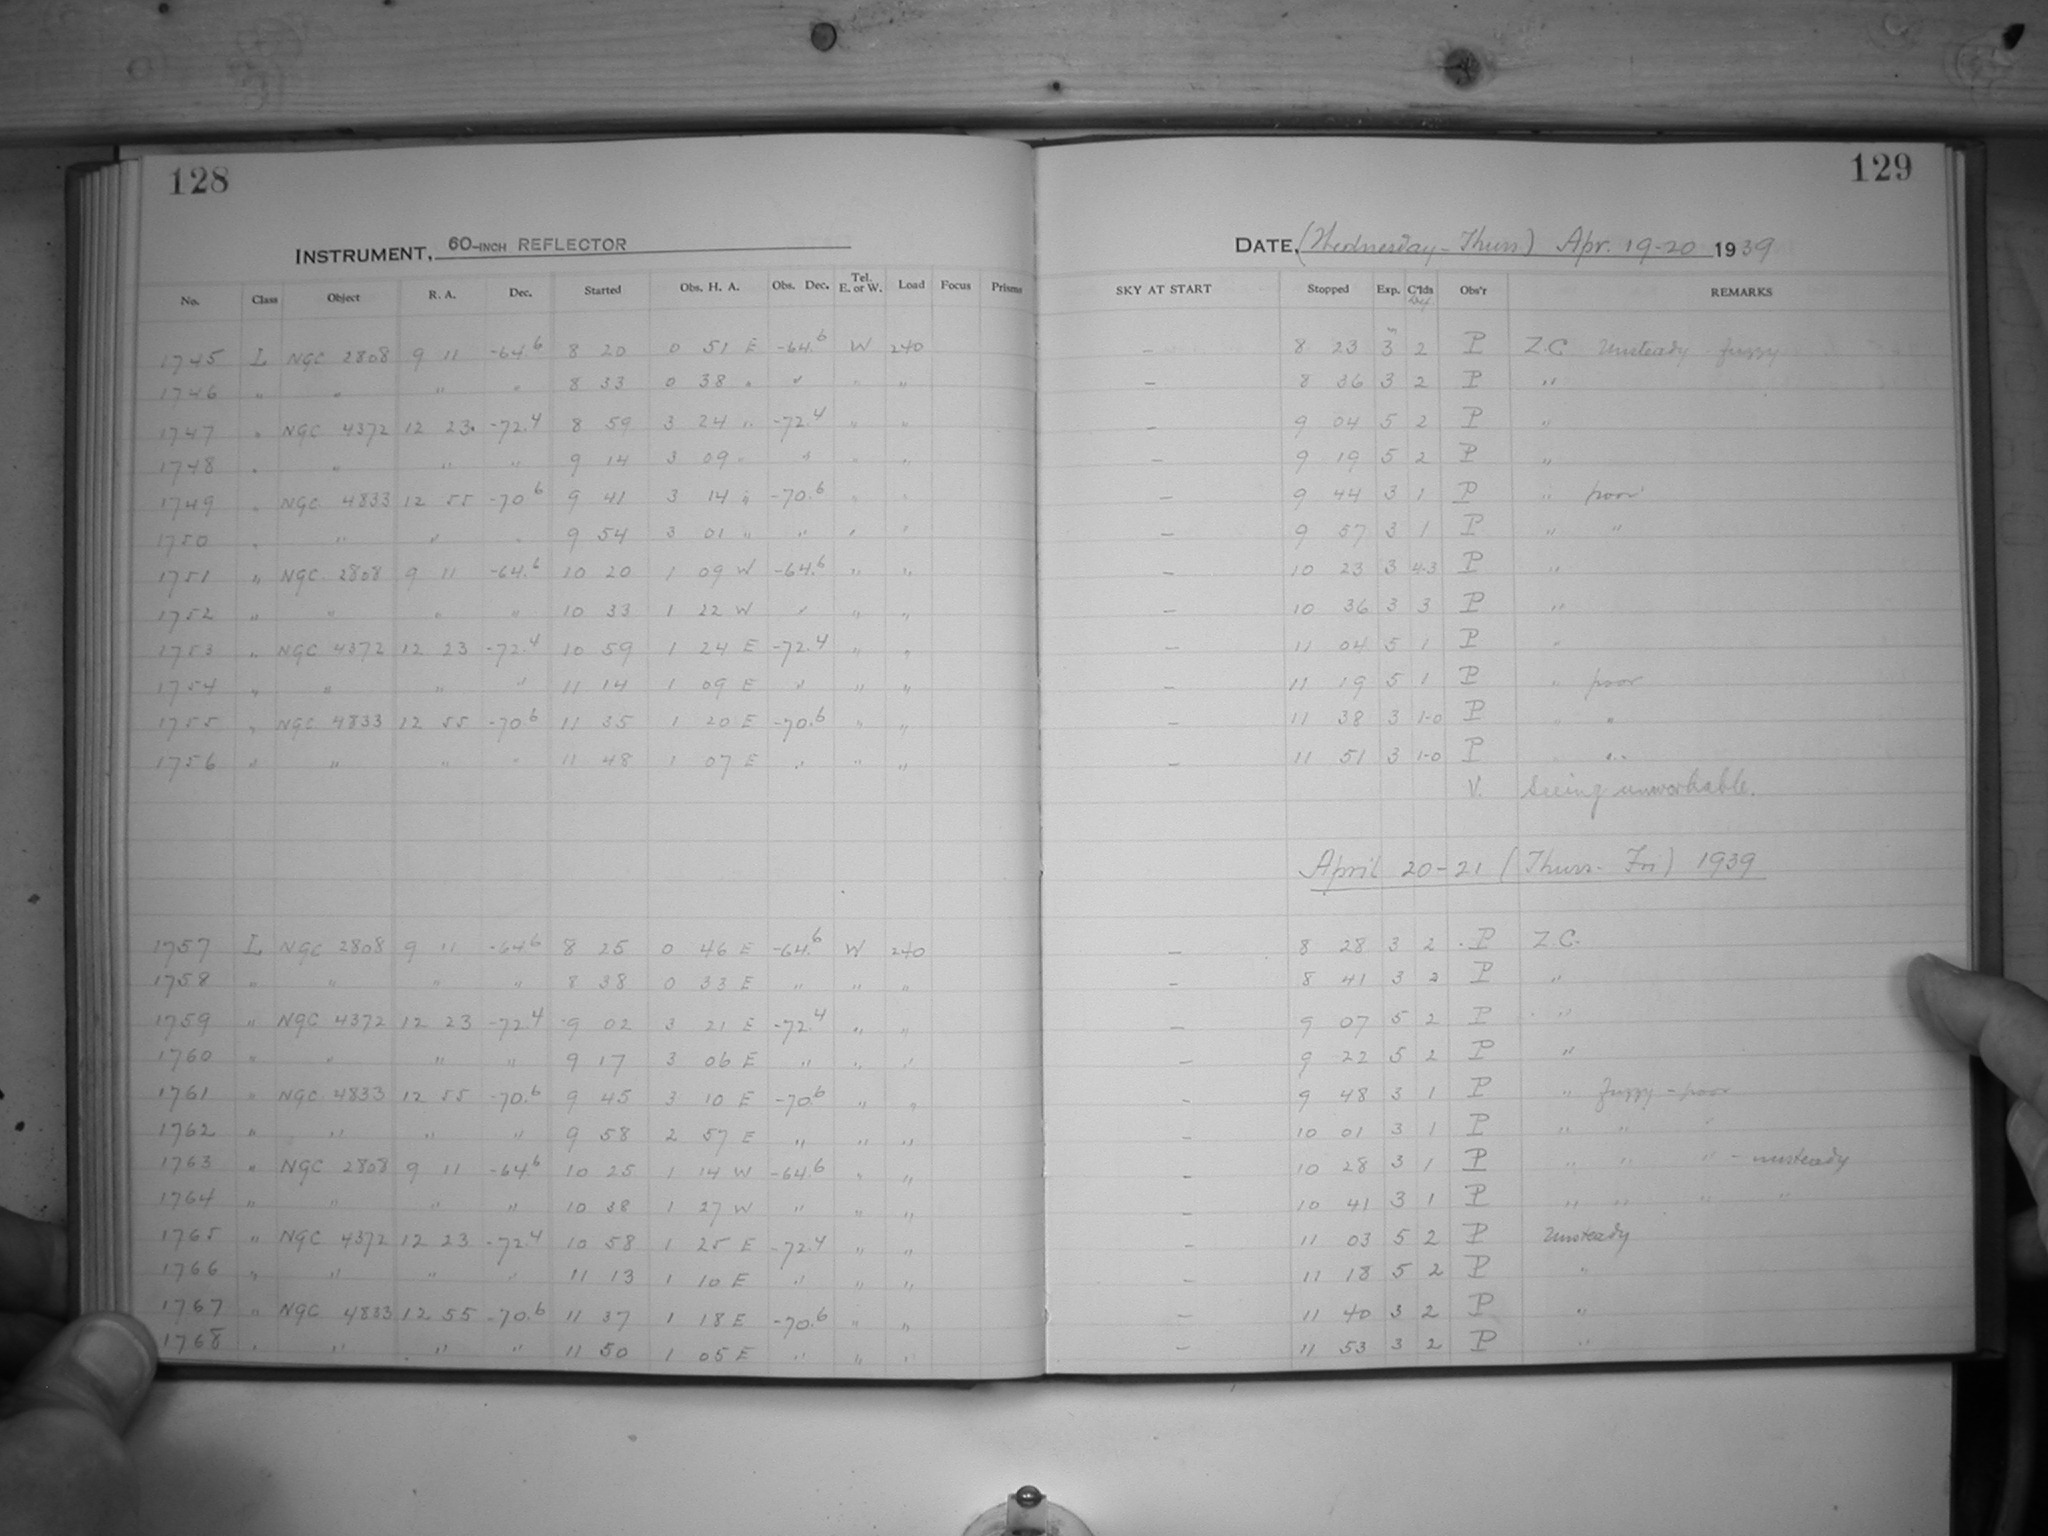 128
INSTRUMENT, 60-INCH REFLECTOR
No. Class Object R. A. Dec. Started Obs. H. A. Obs. Dec. Tel. E. or W. Load Focus Prisms
1745 L NGC 2808 9 11 -64.6 8 20 0 51 E -64.6 W 240
1746 " " " " 8 33 0 38 " " " "
1747 " NGC 4372 12 23 -72.4 8 59 3 24 " -72.4 " "
1748 " " " " 9 14 3 09 " " " "
1749 " NGC 4833 12 55 -70.6 9 41 3 14 " -70.6 " "
1750 " " " " 9 54 3 01 " " " "
1751 " NGC 2808 9 11 -64.6 10 20 1 09 W -64.6 " "
1752 " " " " 10 33 1 22 W " " "
1753 " NGC 4372 12 23 -72.4 10 59 1 24 E -72.4 " "
1754 " " " " 11 14 1 09 E " " "
1755 " NGC 4833 12 55 -70.6 11 35 1 20 E -70.6 " "
1756 " " " " 11 48 1 07 E " " "
1757 L NGC 2808 9 11 -64.6 8 25 0 46 E -64.6 W 240
1758 " " " " 8 38 0 33 E " " "
1759 " NGC 4372 12 23 -72.4 9 02 3 21 E -72.4 " "
1760 " " " " 9 17 3 06 E " " "
1761 " NGC 4833 12 55 -70.6 9 45 3 10 E -70.6 " "
1762 " " " " 9 58 2 57 E " " "
1763 " NGC 2808 9 11 -64.6 10 25 1 14 W -64.6 " "
1764 " " " " 10 38 1 27 W " " "
1765 " NGC 4372 12 23 -72.4 10 58 1 25 E -72.4 " "
1766 " " " " 11 13 1 10 E " " "
1767 " NGC 4833 12 55 -70.6 11 37 1 18 E -70.6 " "
1768 " " " " 11 50 1 05 E " " "
129
DATE, (Wednesday - Thurs) Apr. 19-20 1939
SKY AT START Stopped Exp. C'lds Obs'r REMARKS
- 8 23 3m 2 P Z.C. Unsteady fuzzy
- 8 36 3 2 P "
- 9 04 5 2 P "
- 9 19 5 2 P "
- 9 44 3 1 P " poor
- 9 57 3 1 P " "
- 10 23 3 4-3 P "
- 10 36 3 3 P "
- 11 04 5 1 P "
- 11 19 5 1 P " poor
- 11 38 3 1-0 P " "
- 11 51 3 1-0 P " "
V. Seeing unworkable.
April 20-21 (Thurs - Fri) 1939
- 8 28 3 2 P Z.C.
- 8 41 3 2 P "
- 9 07 5 2 P "
- 9 22 5 2 P "
- 9 48 3 1 P " fuzzy - poor
- 10 01 3 1 P " " "
- 10 28 3 1 P " " " - unsteady
- 10 41 3 1 P " " " "
- 11 03 5 2 P Unsteady
- 11 18 5 2 P "
- 11 40 3 2 P "
- 11 53 3 2 P "